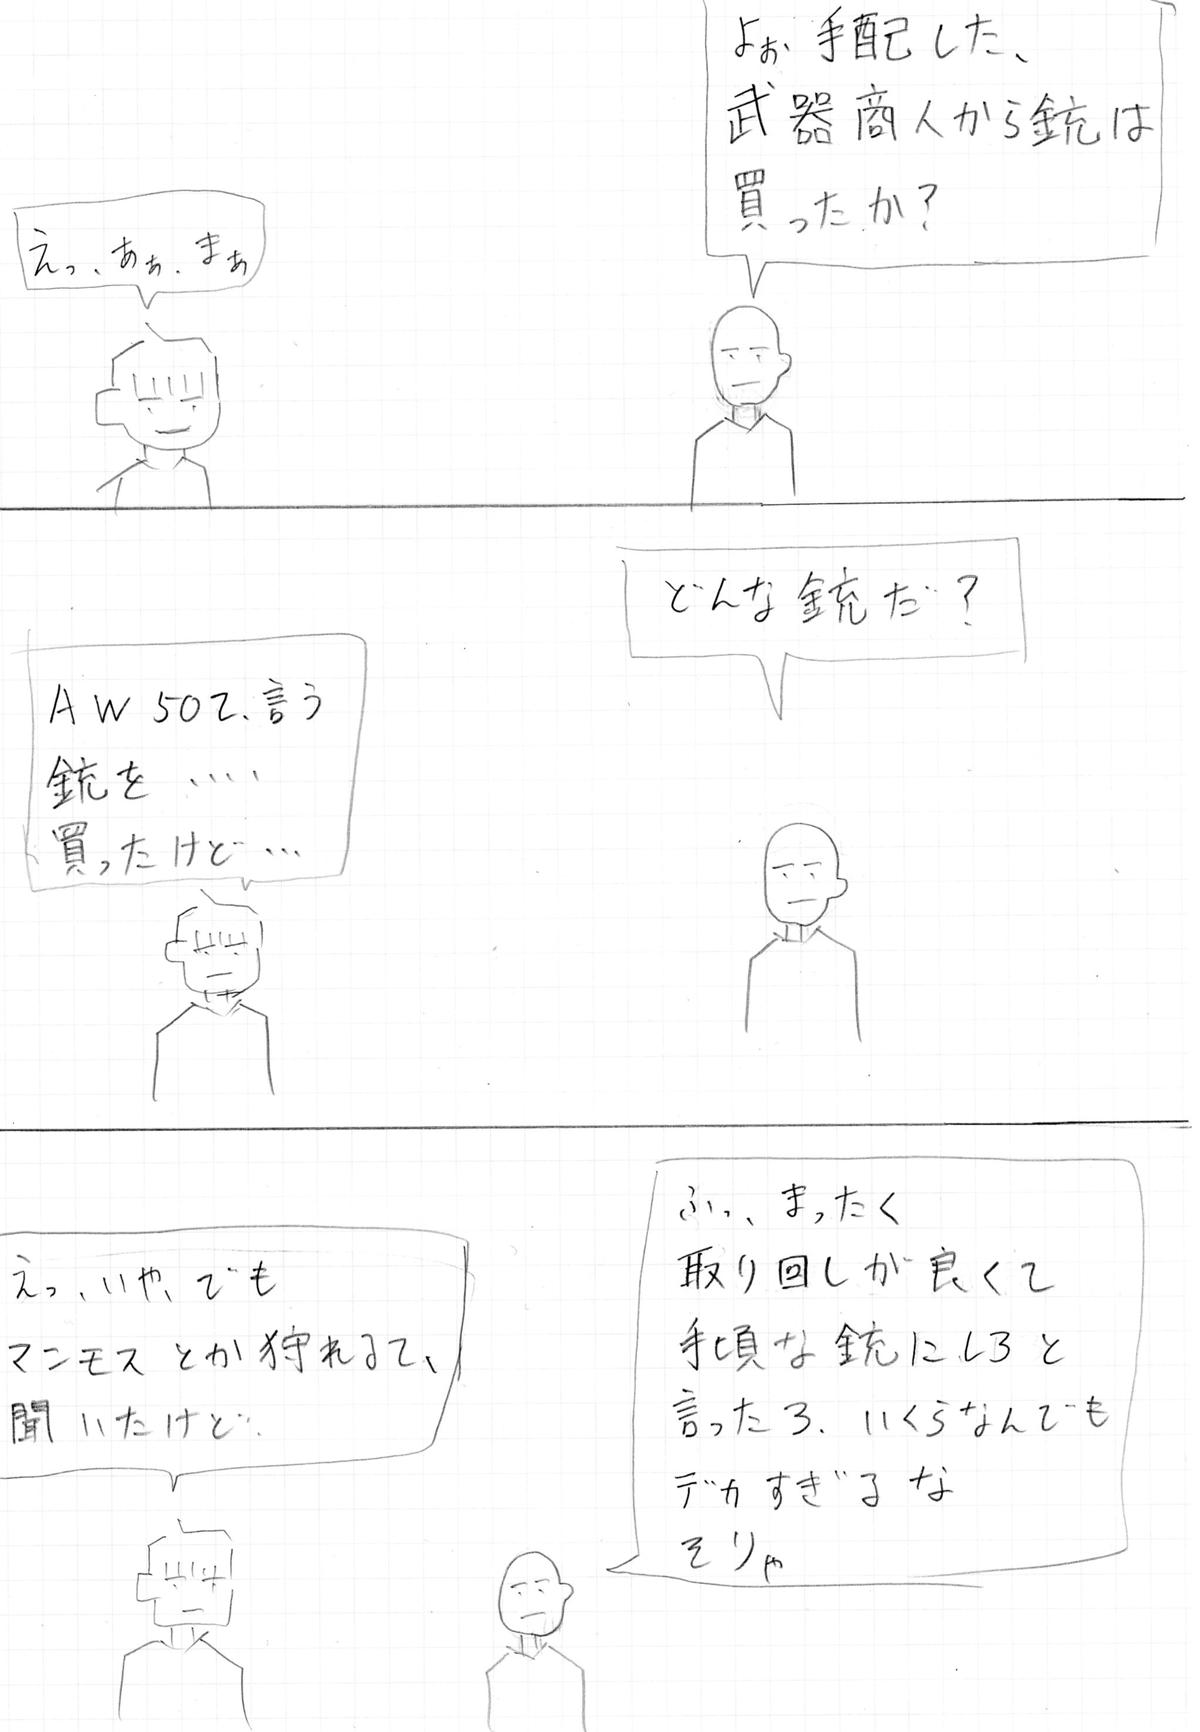 よぉ手配した、
武器商人から銃は
買ったか?
えっ、あぁ、まぁ
どんな銃だ?
AW50て、言う
銃を‥‥
買ったけど…
ふっ、まったく
取り回しが良くて
手頃な銃にしろと
言ったろ、いくらなんでも
デカすぎるな
そりゃ
えっ、いや、でも
マンモスとか狩れるて、
聞いたけど…